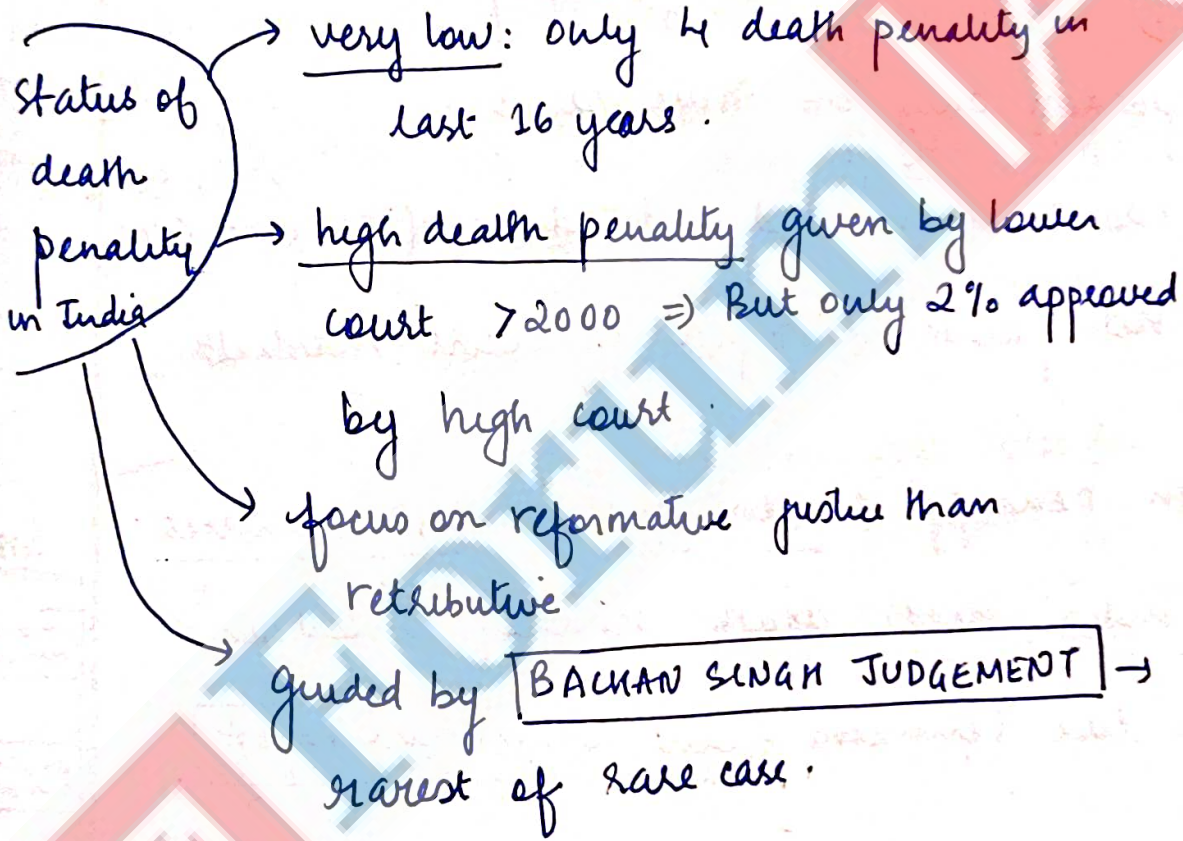 Status of
death
penality
in India
→ very low: only 4 death penality in
last 16 years.
→ high death penality given by lower
court >2000 ⇒ But only 2% approved
by high court.
→ focus on reformative justice than
retributive.
→ guided by BACHAN SINGH JUDGEMENT →
rarest of rare case.
Forum